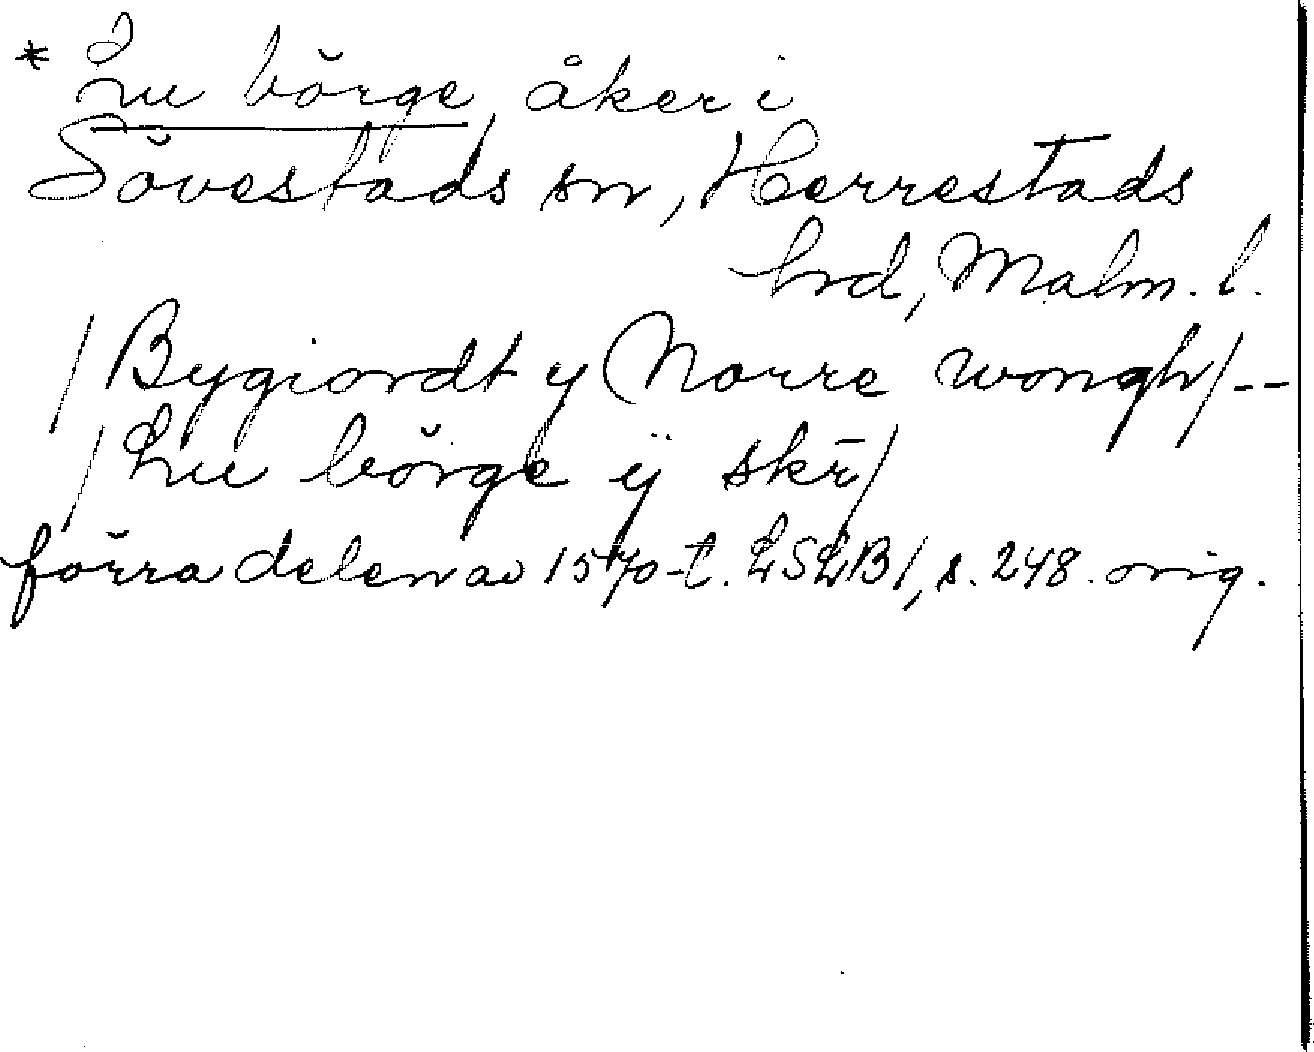 * Lu börge, åker i
Sövestads sn, Herrestads
hrd, Malm. l.
/ Bygiordt y Norre wongh/--
/ Lu börge ij skr̄/
förra delen av 1570-t. LSLB1, s. 248. orig.